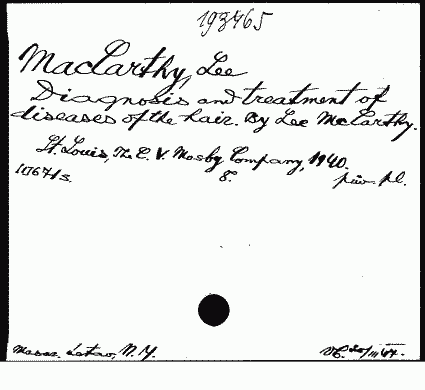 193465
MacCarthy, Lee
Diagnosis and treatment of
diseases of the hair. By Lee McCarthy.
St. Louis, The C. V. Mosby Company, 1940.
8.
pl.
N. Y.